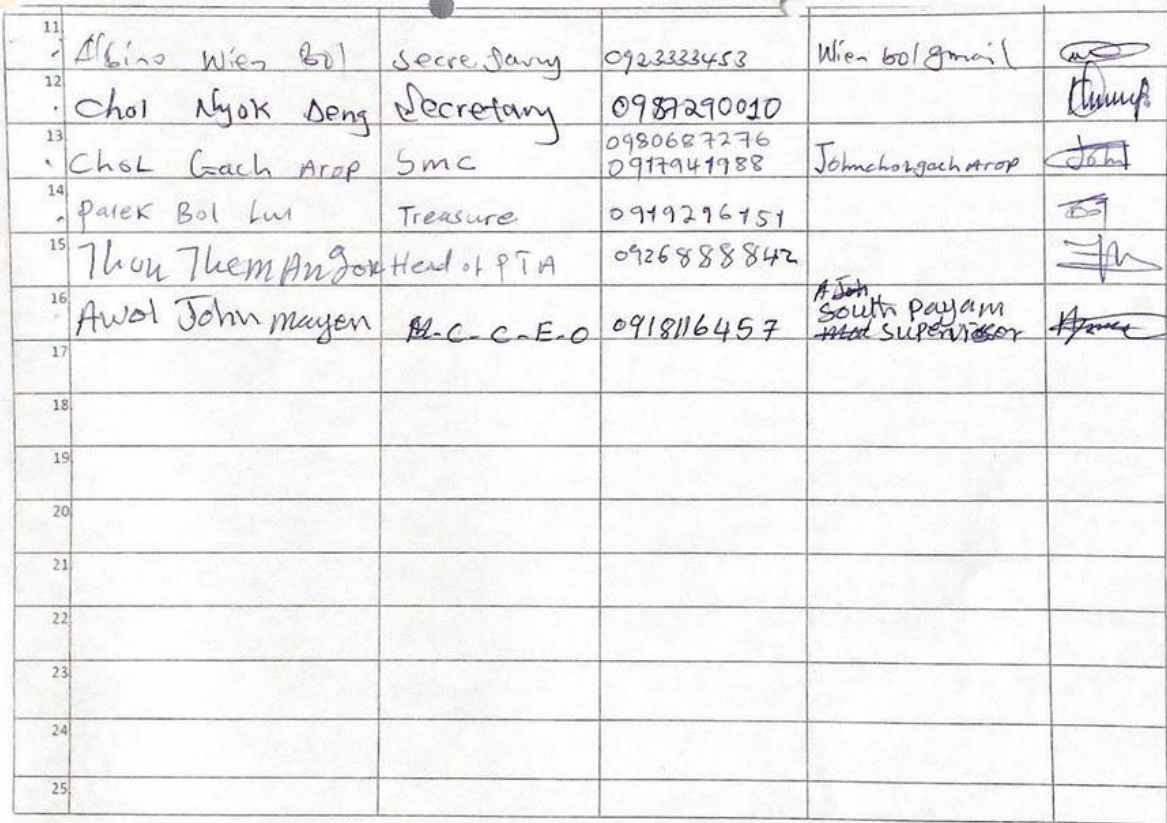 11 Albino Wien Bol Secretary 0923333453 Wien bol gmail
12 Chol Nyok Deng Secretary 0987290010
13 Chol Gach Arop Smc 0980687276 0917941988 Johncholgach Arop John
14 Parek Bol Lui Treasure 0919296151 Bol
15 Thon Them Angok Head of PTA 0926888842
16 Awol John mayen M-C-C-E-O 0918116457 South payam supervisor
17
18
19
20
21
22
23
24
25